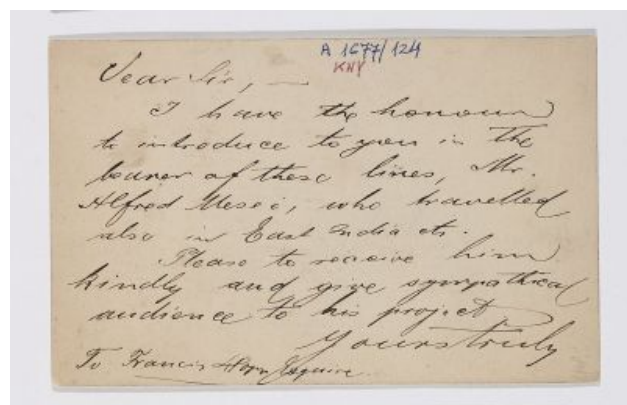 A 1677/124
KNY
Dear Sir, —
I have the honour
to introduce to you in the
bearer of these lines, Mr.
Alfred Mesei, who travelled
also in East India etc.
Please to receive him
kindly and give sympathical
audience to his project
Yours truly
To Francis Hopp Esquire